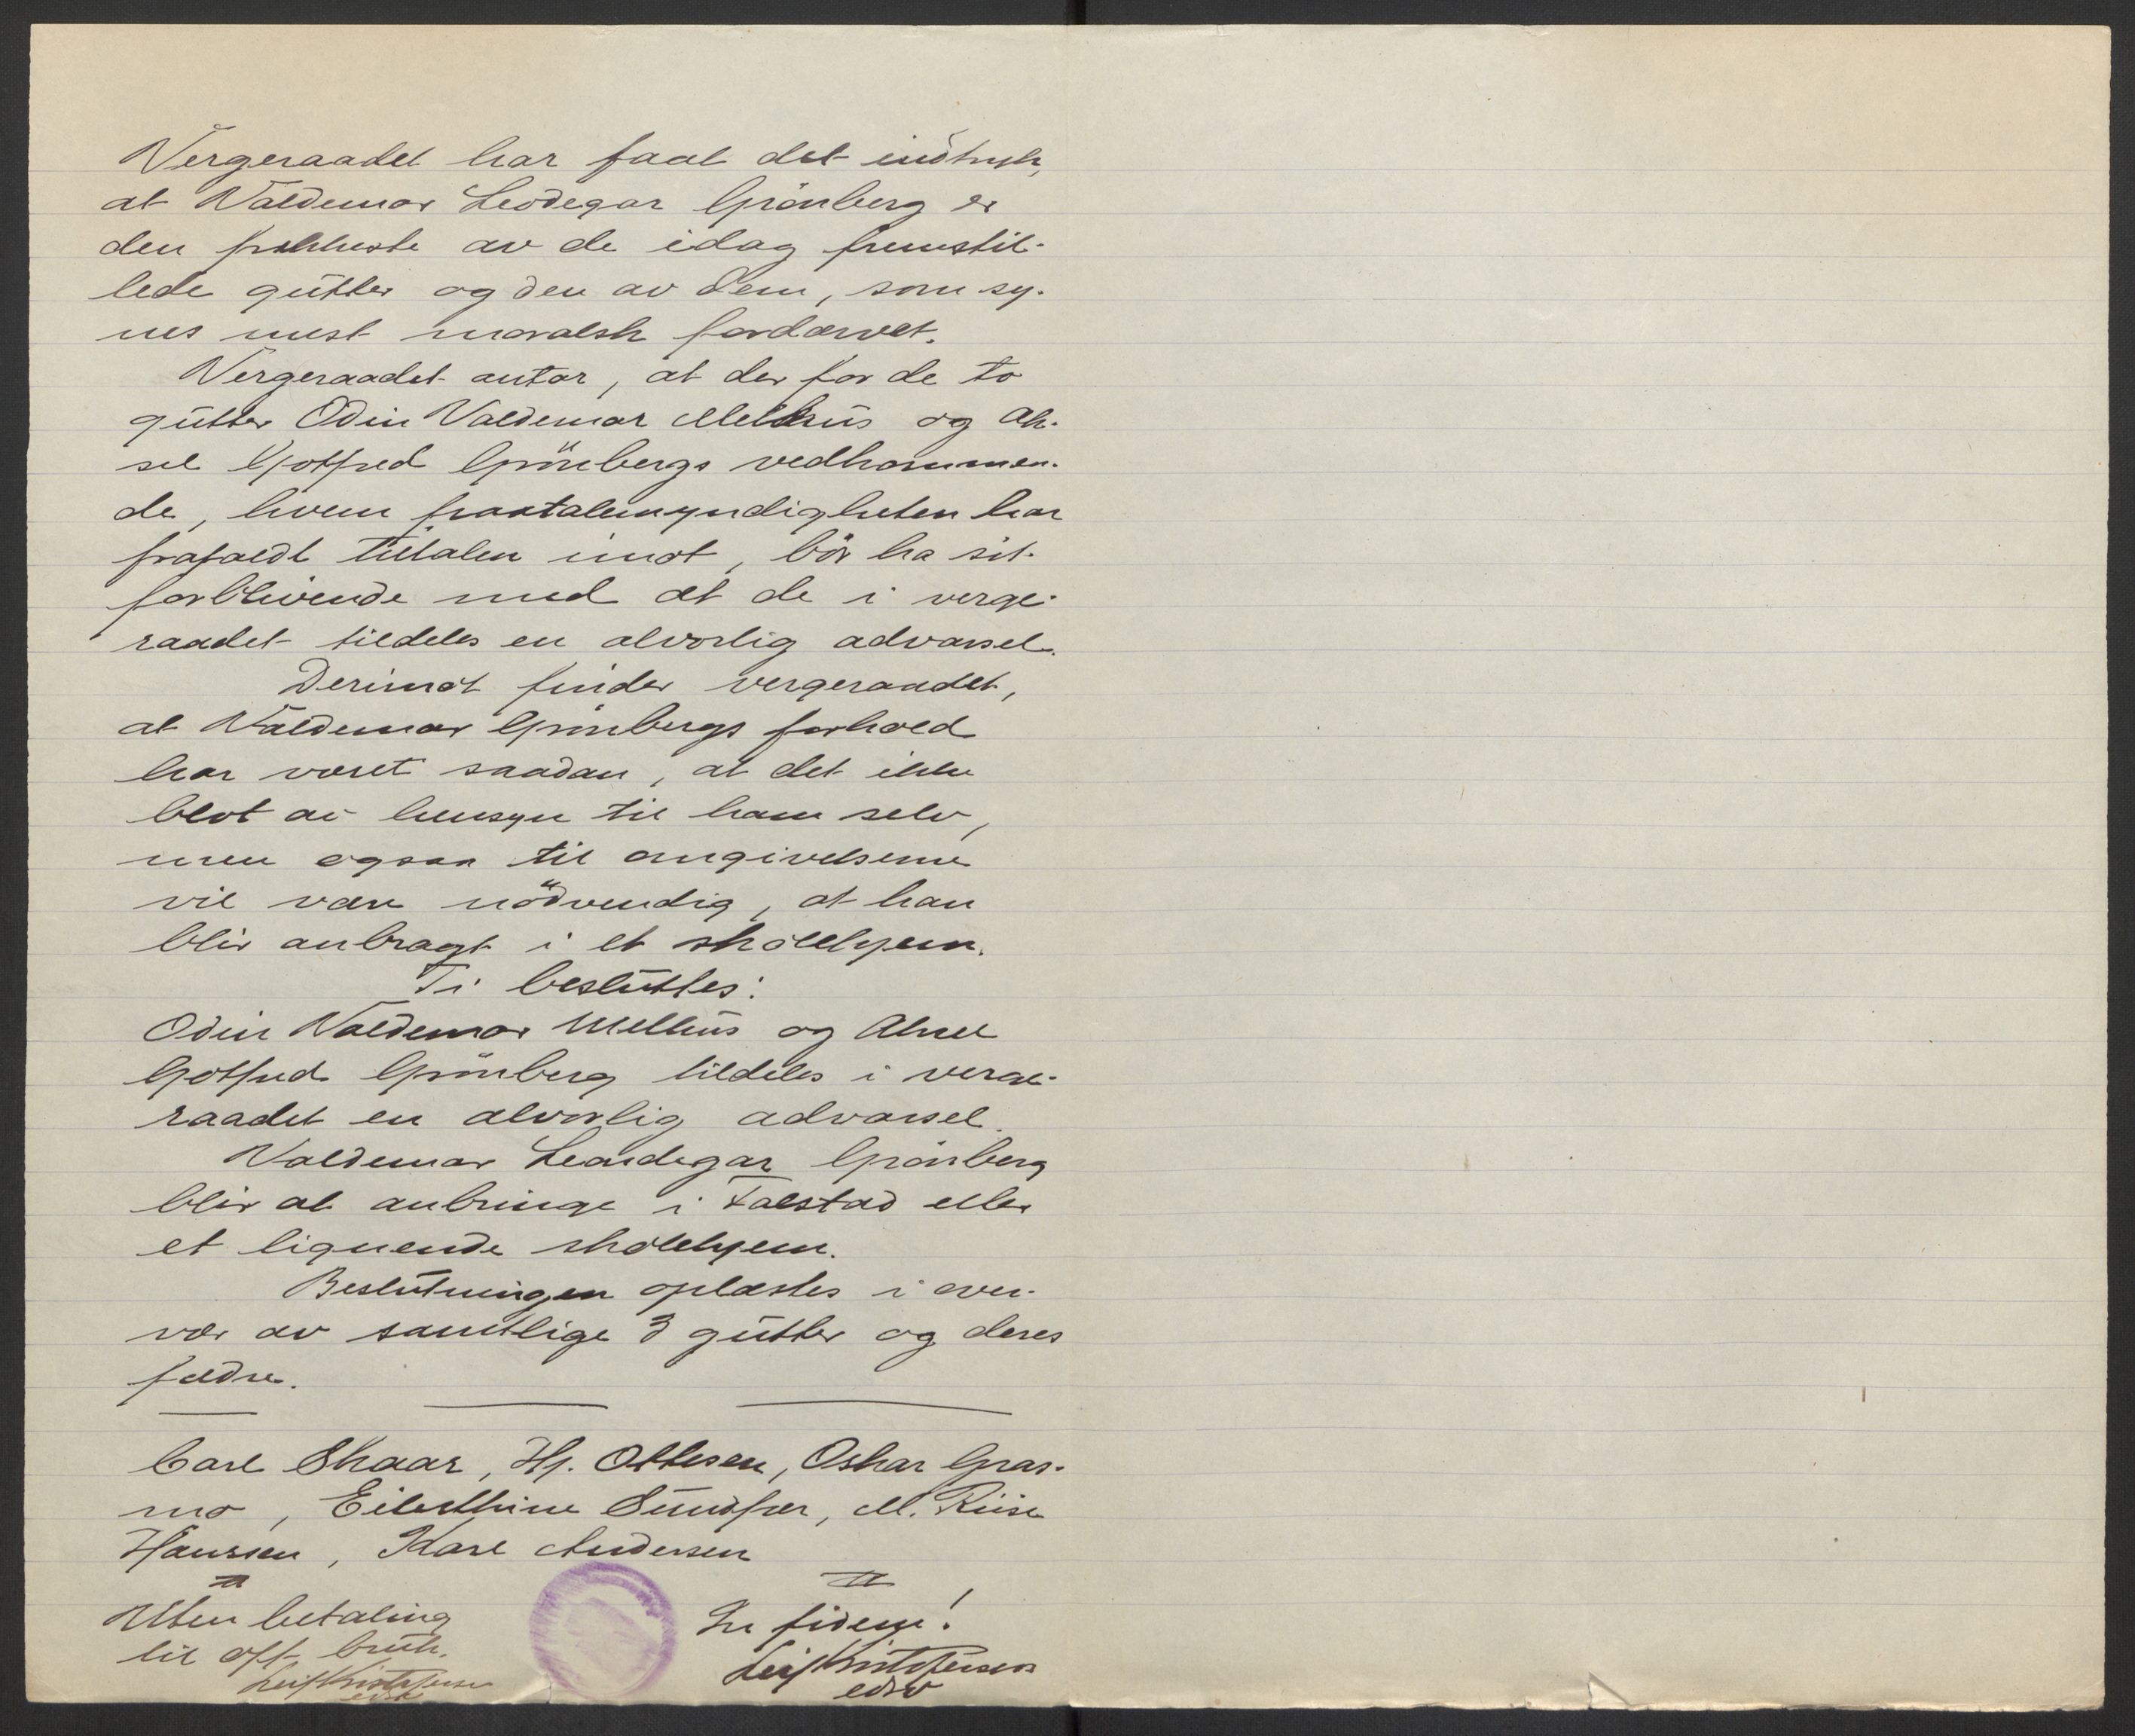 Vergeraadet har faat det indtryk,
at Valdemar Leodegar Grönberg er
den frekkeste av de idag fremstil-
lede gutter og den av dem, som sy-
nes mest moralsk fordærvet.
Vergeraadet antar, at der for de to
gutter Odin Valdemar Melhus og Ak-
sel Gotfred Grönbergs vedkommen-
de, hvem paatalemyndigheten har
frafaldt tiltalen imot, bör ha sit
forblivende med at de i verge-
raadet tildeles en alvorlig advarsel.
Derimot finder vergeraadet,
at Valdemar Grönbergs forhold
har været saadan, at det ikke
blot av hensyn til ham selv,
men ogsaa til omgivelserne
vil være nödvendig, at han
blir anbragt i et skolehjem.
Ti besluttes:
Odin Valdemar Melhus og Aksel
Gotfred Grönberg tildeles i verge-
raadet en alvorlig advarsel.
Valdemar Leondegar Grönberg
blir at anbringe i Falstad eller
et lignende skolehjem.
Beslutningen oplæstes i over-
vær av samtlige 3 gutter og deres
fædre.
Carl Skaar, Hj. Ottesen, Oskar Gras-
mo, Eilerthine Sundfær, M. Riise
Hansen, Karl Andersen
Uten betaling
til off. bruk.
Leif Kristofersen
edsv
In fidem!
Leif Kristofersen
edsv